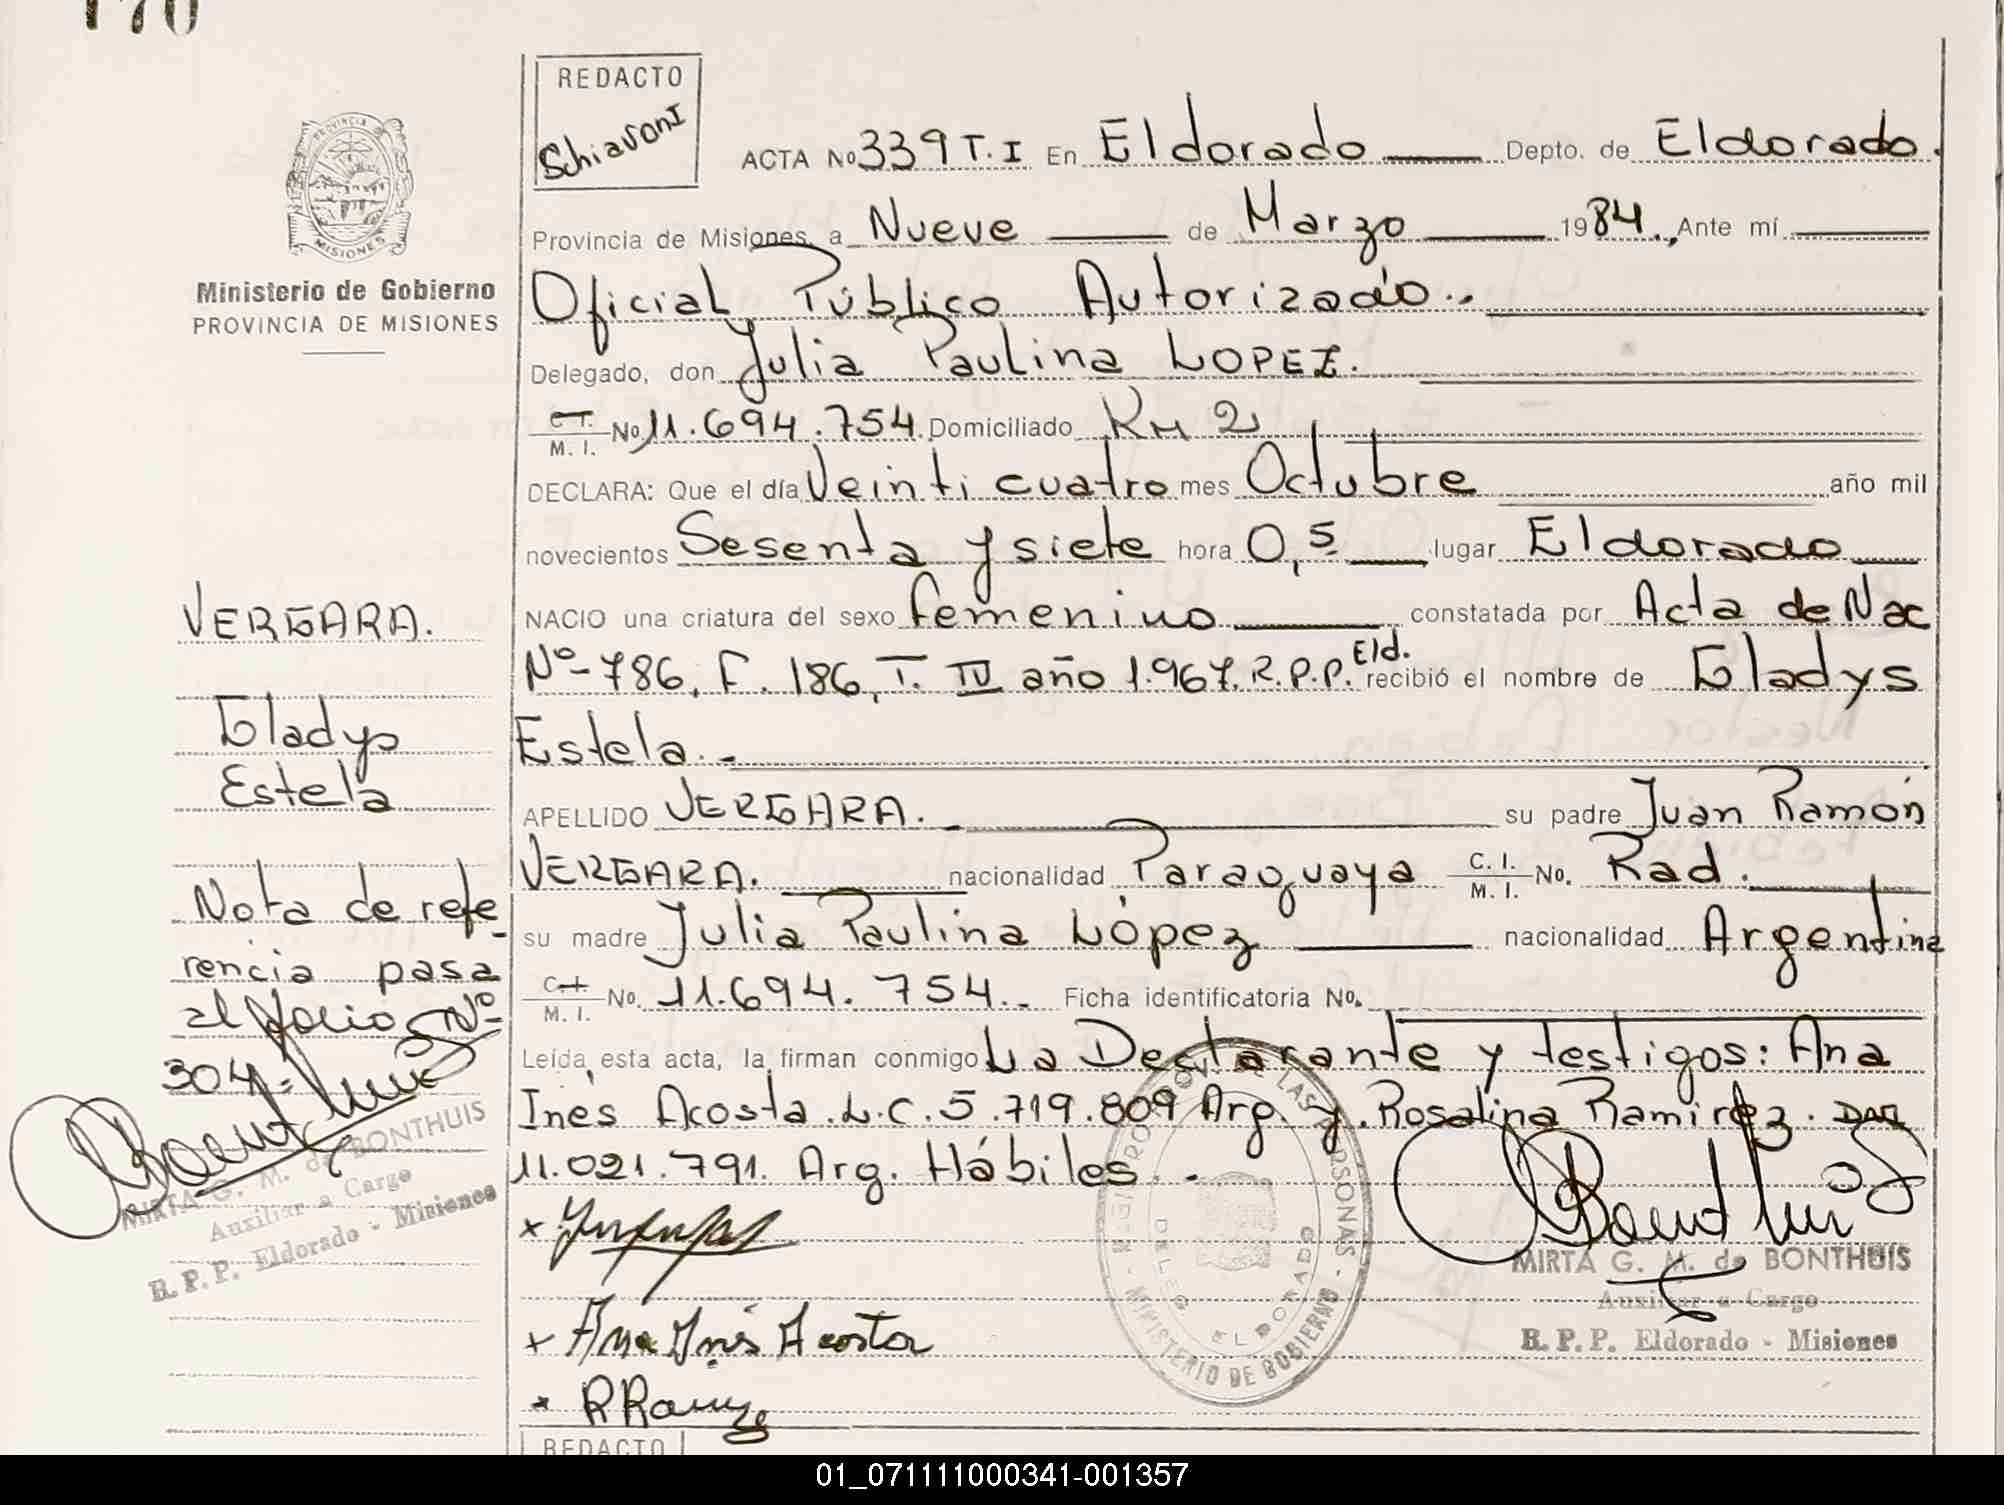 170
REDACTO
Schiavoni
PROVINCIA
MISIONES
Ministerio de Gobierno
PROVINCIA DE MISIONES
ACTA No 339 T. I En Eldorado Depto. de Eldorado.
Provincia de Misiones, a Nueve de Marzo 1984., Ante mí
Oficial Público Autorizado..
Delegado, don Julia Paulina LOPEZ.
C.I. M. I. No 11.694.754. Domiciliado Km 2
DECLARA: Que el día Veinti cuatro mes Octubre año mil
novecientos Sesenta y siete hora 0,5 lugar Eldorado
NACIO una criatura del sexo femenino constatada por Acta de Nac
Nº-786, F. 186, T. IV año 1.967. R.P.P. Eld. recibió el nombre de Gladys
Estela.-
APELLIDO VERGARA. su padre Juan Ramón
VERGARA. nacionalidad Paraguaya C. I. M. I. No. Rad.
su madre Julia Paulina López nacionalidad Argentina
C.I. M. I. No. 11.694.754.- Ficha identificatoria No.
Leída, esta acta, la firman conmigo La Declarante y testigos: Ana
Inés Acosta. L.C. 5.719.809 Arg. y. Rosalina Ramirez.
11.021.791. Arg. Hábiles.-
x
x Ana Inés Acosta
x R Ramirez
VERGARA.
Gladys
Estela
Nota de refe
rencia pasa
al folio Nº
304.
MIRTA G. M. de BONTHUIS
Auxiliar a Cargo
R. P. P. Eldorado - Misiones
MINISTERIO DE GOBIERNO
DELEG ELDORADO
MIRTA G. M. de BONTHUIS
Auxiliar a Cargo
R. P. P. Eldorado - Misiones
REDACTO
01_071111000341-001357